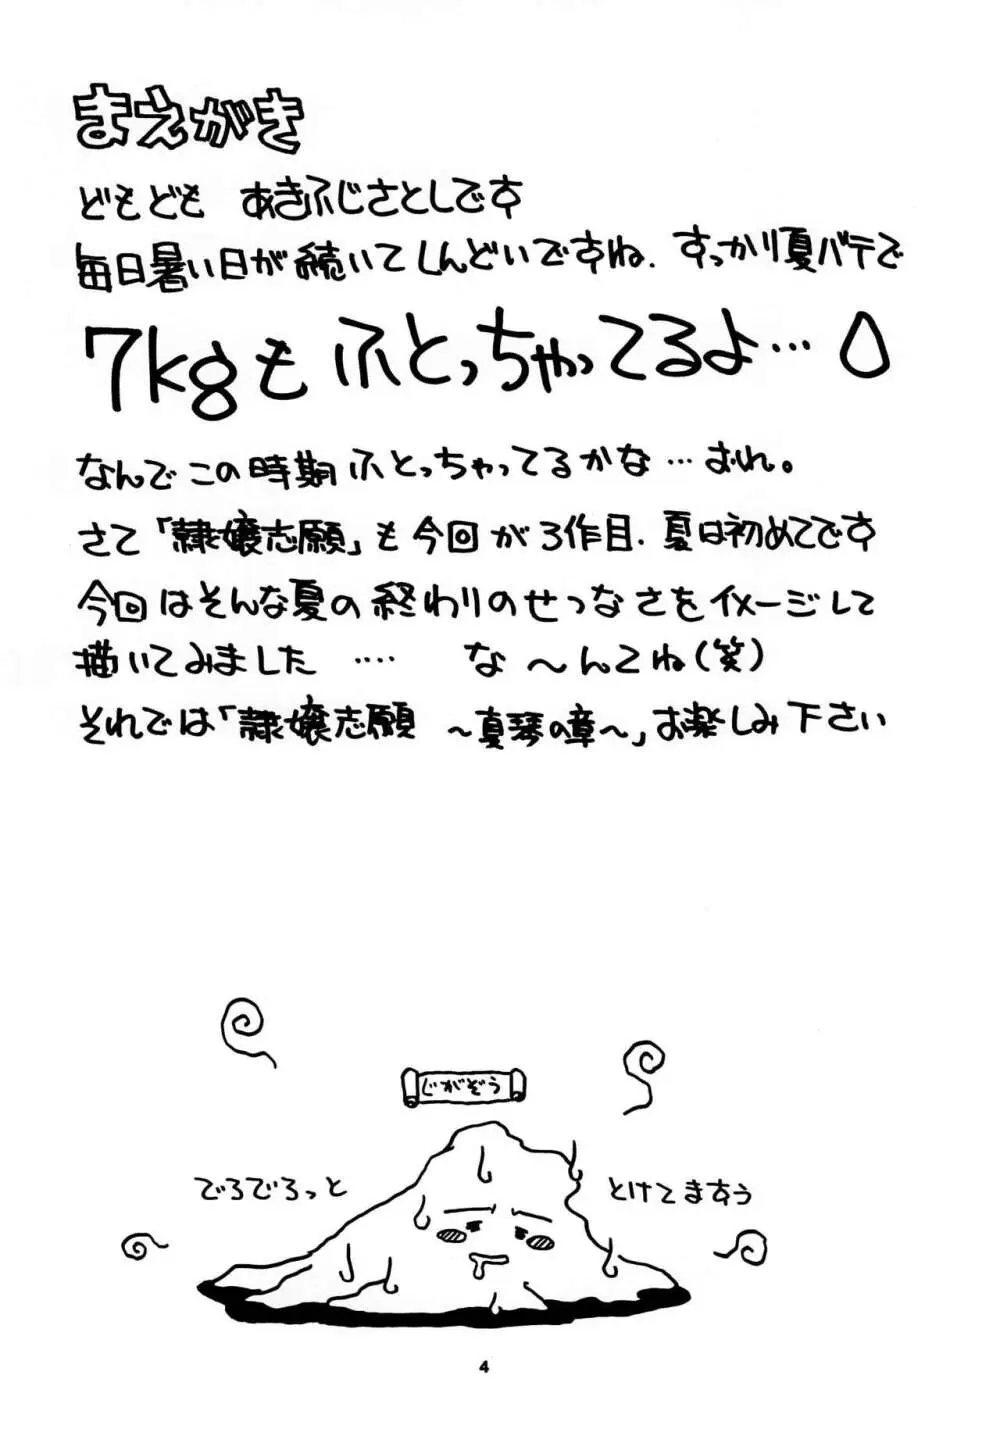 まえがき
どもども あきふじさとしです
毎日暑い日が続いてしんどいですね. すっかり夏バテで
7kgもふとっちゃってるよ…
なんでこの時期ふとっちゃってるかな…おれ。
さて「隷嬢志願」も今回が3作目. 夏は初めてです
今回はそんな夏の終わりのせつなさをイメージして
描いてみました ‥‥ な〜んてね(笑)
それでは「隷嬢志願 〜真琴の章〜」お楽しみ下さい
じがぞう
でろでろっと とけてますぅ
4